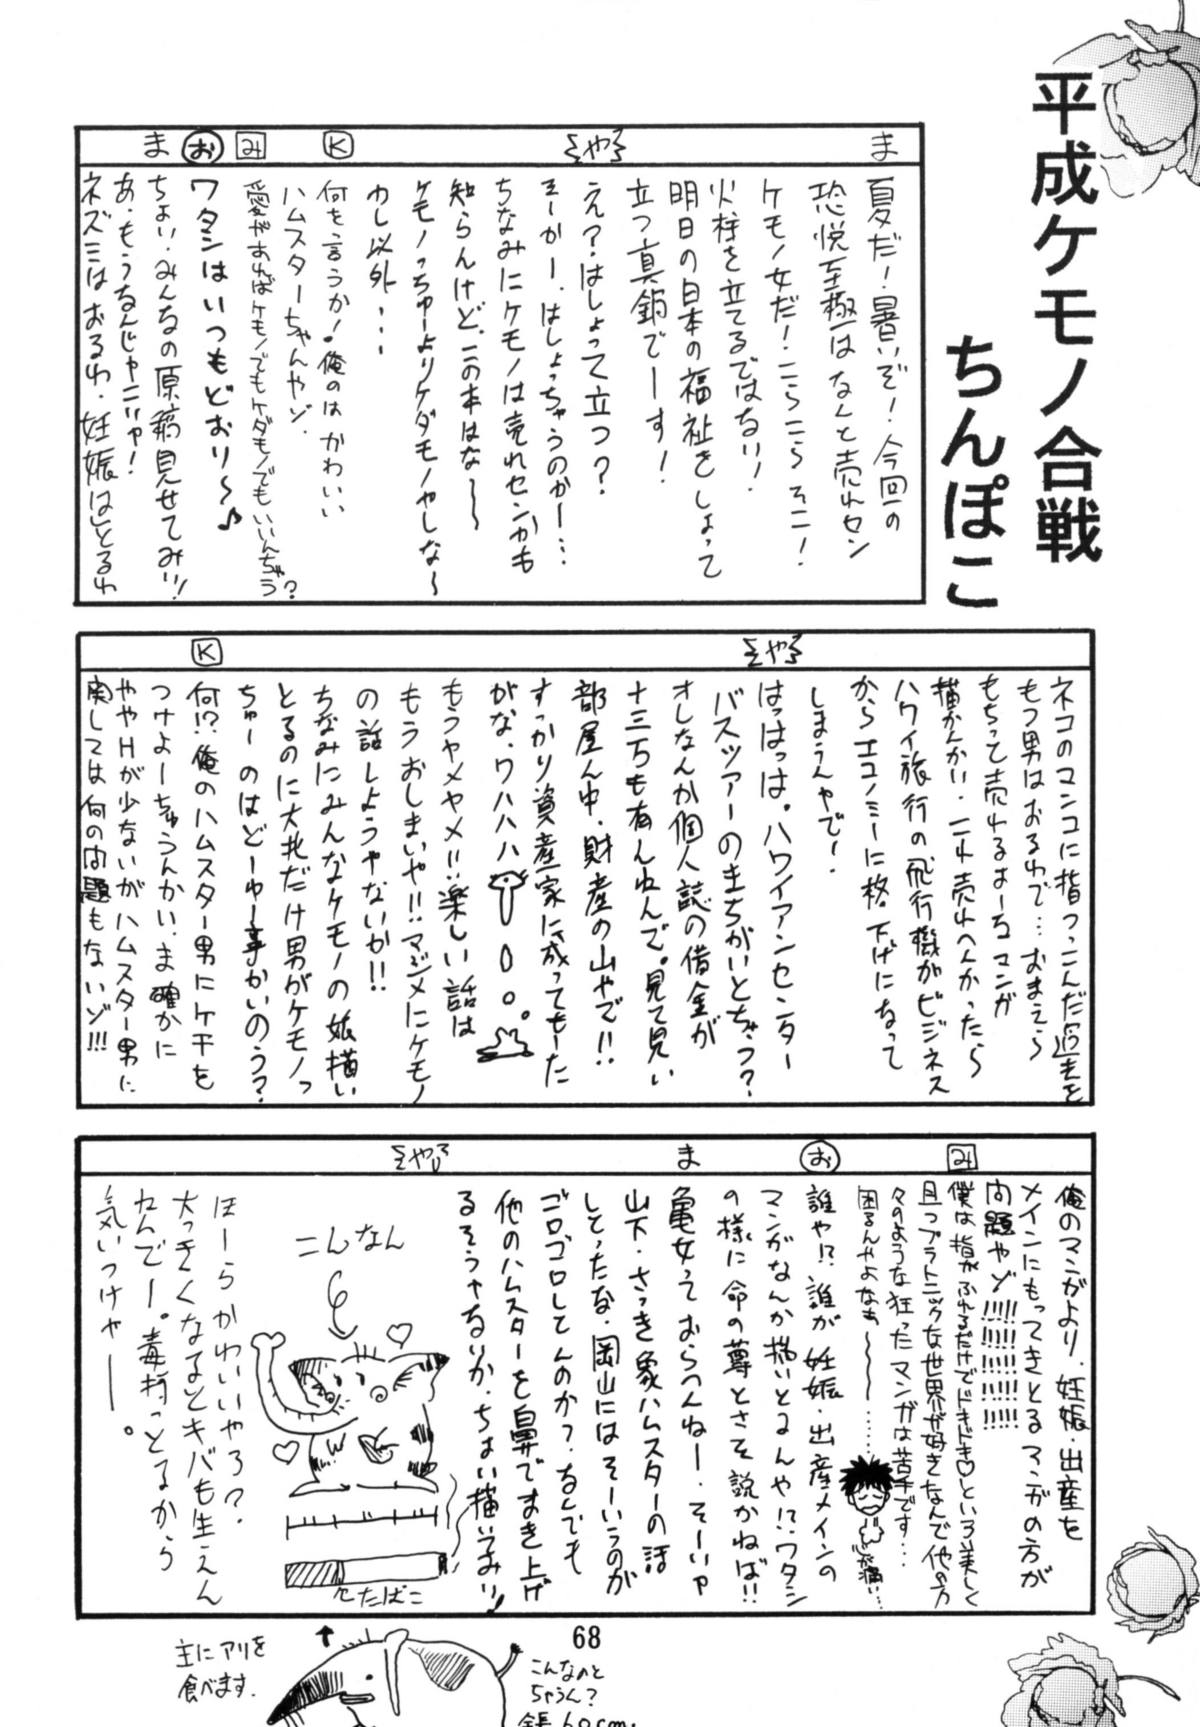 平成ケモノ合戦
ちんぽこ
ま
夏だ！暑いぞ！今回の
恐悦至極はなんと売れセン
ケモノ女だ！こらこらそこ！
火柱を立てるではない！
明日の日本の福祉をしょって
立つ真鍋でーす！
そや
え？はしょって立つ？
そーかー、はしょっちゃうのかー…
ちなみにケモノは売れセンかも
知らんけど、この本はな～
ケモノっちゅーよりケダモノやしな～
わし以外…
K
何を言うか！俺のはかわいい
ハムスターちゃんやゾ。
み
愛があればケモノでもケダモノでもいいんちゃう？
お
ワタシはいつもどおり～♪
ま
ちょい、みんなの原稿見せてみい！
あ、もうなんじゃこりゃ！
ネズミはおるわ、妊娠はしとるわ
ネコのマンコに指つっこんだ過去を
もつ男はおるわで…おまえら
もちって売れるよーなマンガ
描かんかい、これ売れへんかったら
ハワイ旅行の飛行機がビジネス
からエコノミーに格下げになって
しまうんやで！
そや
はっはっは。ハワイアンセンター
バスツアーのまちがいとちゃう？
オレなんか個人誌の借金が
十三万も有んねんで。見て見い
部屋ん中、財産の山やで！！
すっかり資産家に成ってもーた
がな、ワハハハ
もうヤメヤメ！！楽しい話は
もうおしまいや！！マジメにケモノ
の話しようやないか！！
ちなみにみんなケモノの娘描い
とるのに大兆だけ男がケモノっ
ちゅーのはどーゆー事かいのう？
K
何！？俺のハムスター男にケチを
つけよーちゅうんかい、ま、確かに
ややHが少ないがハムスター男に
関しては何の問題もないゾ！！！
俺のマンガより、妊娠・出産を
メインにもってきとるマンガの方が
問題やゾ!!!!!!!!!!!!!!
み
僕は指がふれるだけでドキドキ♡という美しく
且つプラトニックな世界が好きなんで他の方
々のような狂ったマンガは苦手です…
困るんやよなぁ～～……
心が痛い…
お
誰や！？誰が妊娠・出産メインの
マンガなんか描いとるんや！？ワタシ
の様に命の尊とさを説かねば！！
ま
亀女っておらへんねー、そーいや
山下、さっき象ハムスターの話
しとったな、岡山にはそーいうのが
ゴロゴロしてんのか？なんでも
他のハムスターを鼻でまき上げ
るそうやないか、ちょい描いてみい！
そや
こんなん
たばこ
ほーらかわいいやろ？
大っきくなるとキバも生えん
ねんでー。毒持っとるから
気いつけや――。
68
主にアリを
食べます。
こんなのと
ちゃうん？
全長60cm.